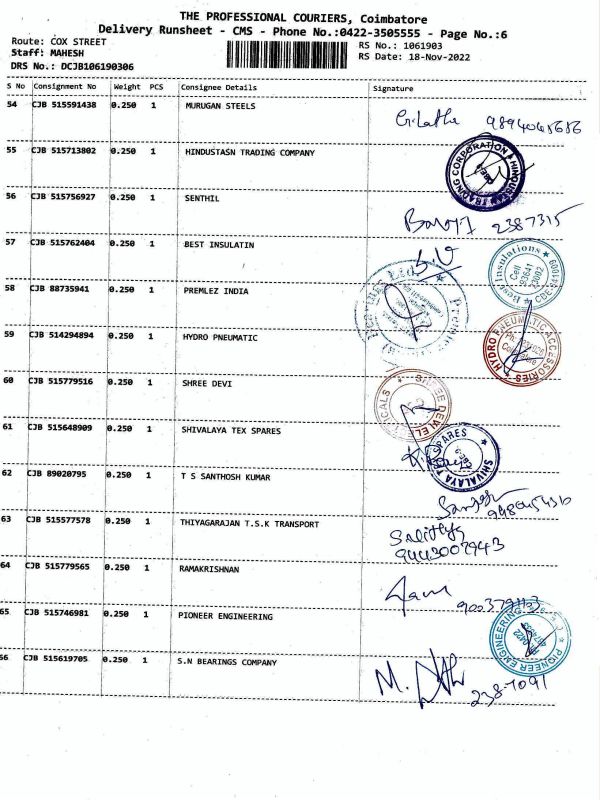 THE PROFESSIONAL COURIERS, Coimbatore
Delivery Runsheet - CMS - Phone No.:0422-3505555 - Page No.:6
Route: COX STREET
Staff: MAHESH
DRS No.: DCJB106190306
RS No.: 1061903
RS Date: 18-Nov-2022
S No Consignment No Weight PCS Consignee Details Signature
54 CJB 515591438 0.250 1 MURUGAN STEELS
G.Latha
55 CJB 515713802 0.250 1 HINDUSTASN TRADING COMPANY
HINDUSTAN TRADING CORPORATION
56 CJB 515756927 0.250 1 SENTHIL
2387315
57 CJB 515762404 0.250 1 BEST INSULATIN
Best Insulations
Cell
93641
58 CJB 88735941 0.250 1 PREMLEZ INDIA
59 CJB 514294894 0.250 1 HYDRO PNEUMATIC
HYDRO PNEUMATIC ACCESSORIES
60 CJB 515779516 0.250 1 SHREE DEVI
61 CJB 515648909 0.250 1 SHIVALAYA TEX SPARES
SHIVALAYA TEX SPARES
62 CJB 89020795 0.250 1 T S SANTHOSH KUMAR
Santosh
63 CJB 515577578 0.250 1 THIYAGARAJAN T.S.K TRANSPORT
9443007943
64 CJB 515779565 0.250 1 RAMAKRISHNAN
65 CJB 515746981 0.250 1 PIONEER ENGINEERING
PIONEER ENGINEERING
66 CJB 515619705 0.250 1 S.N BEARINGS COMPANY
M.